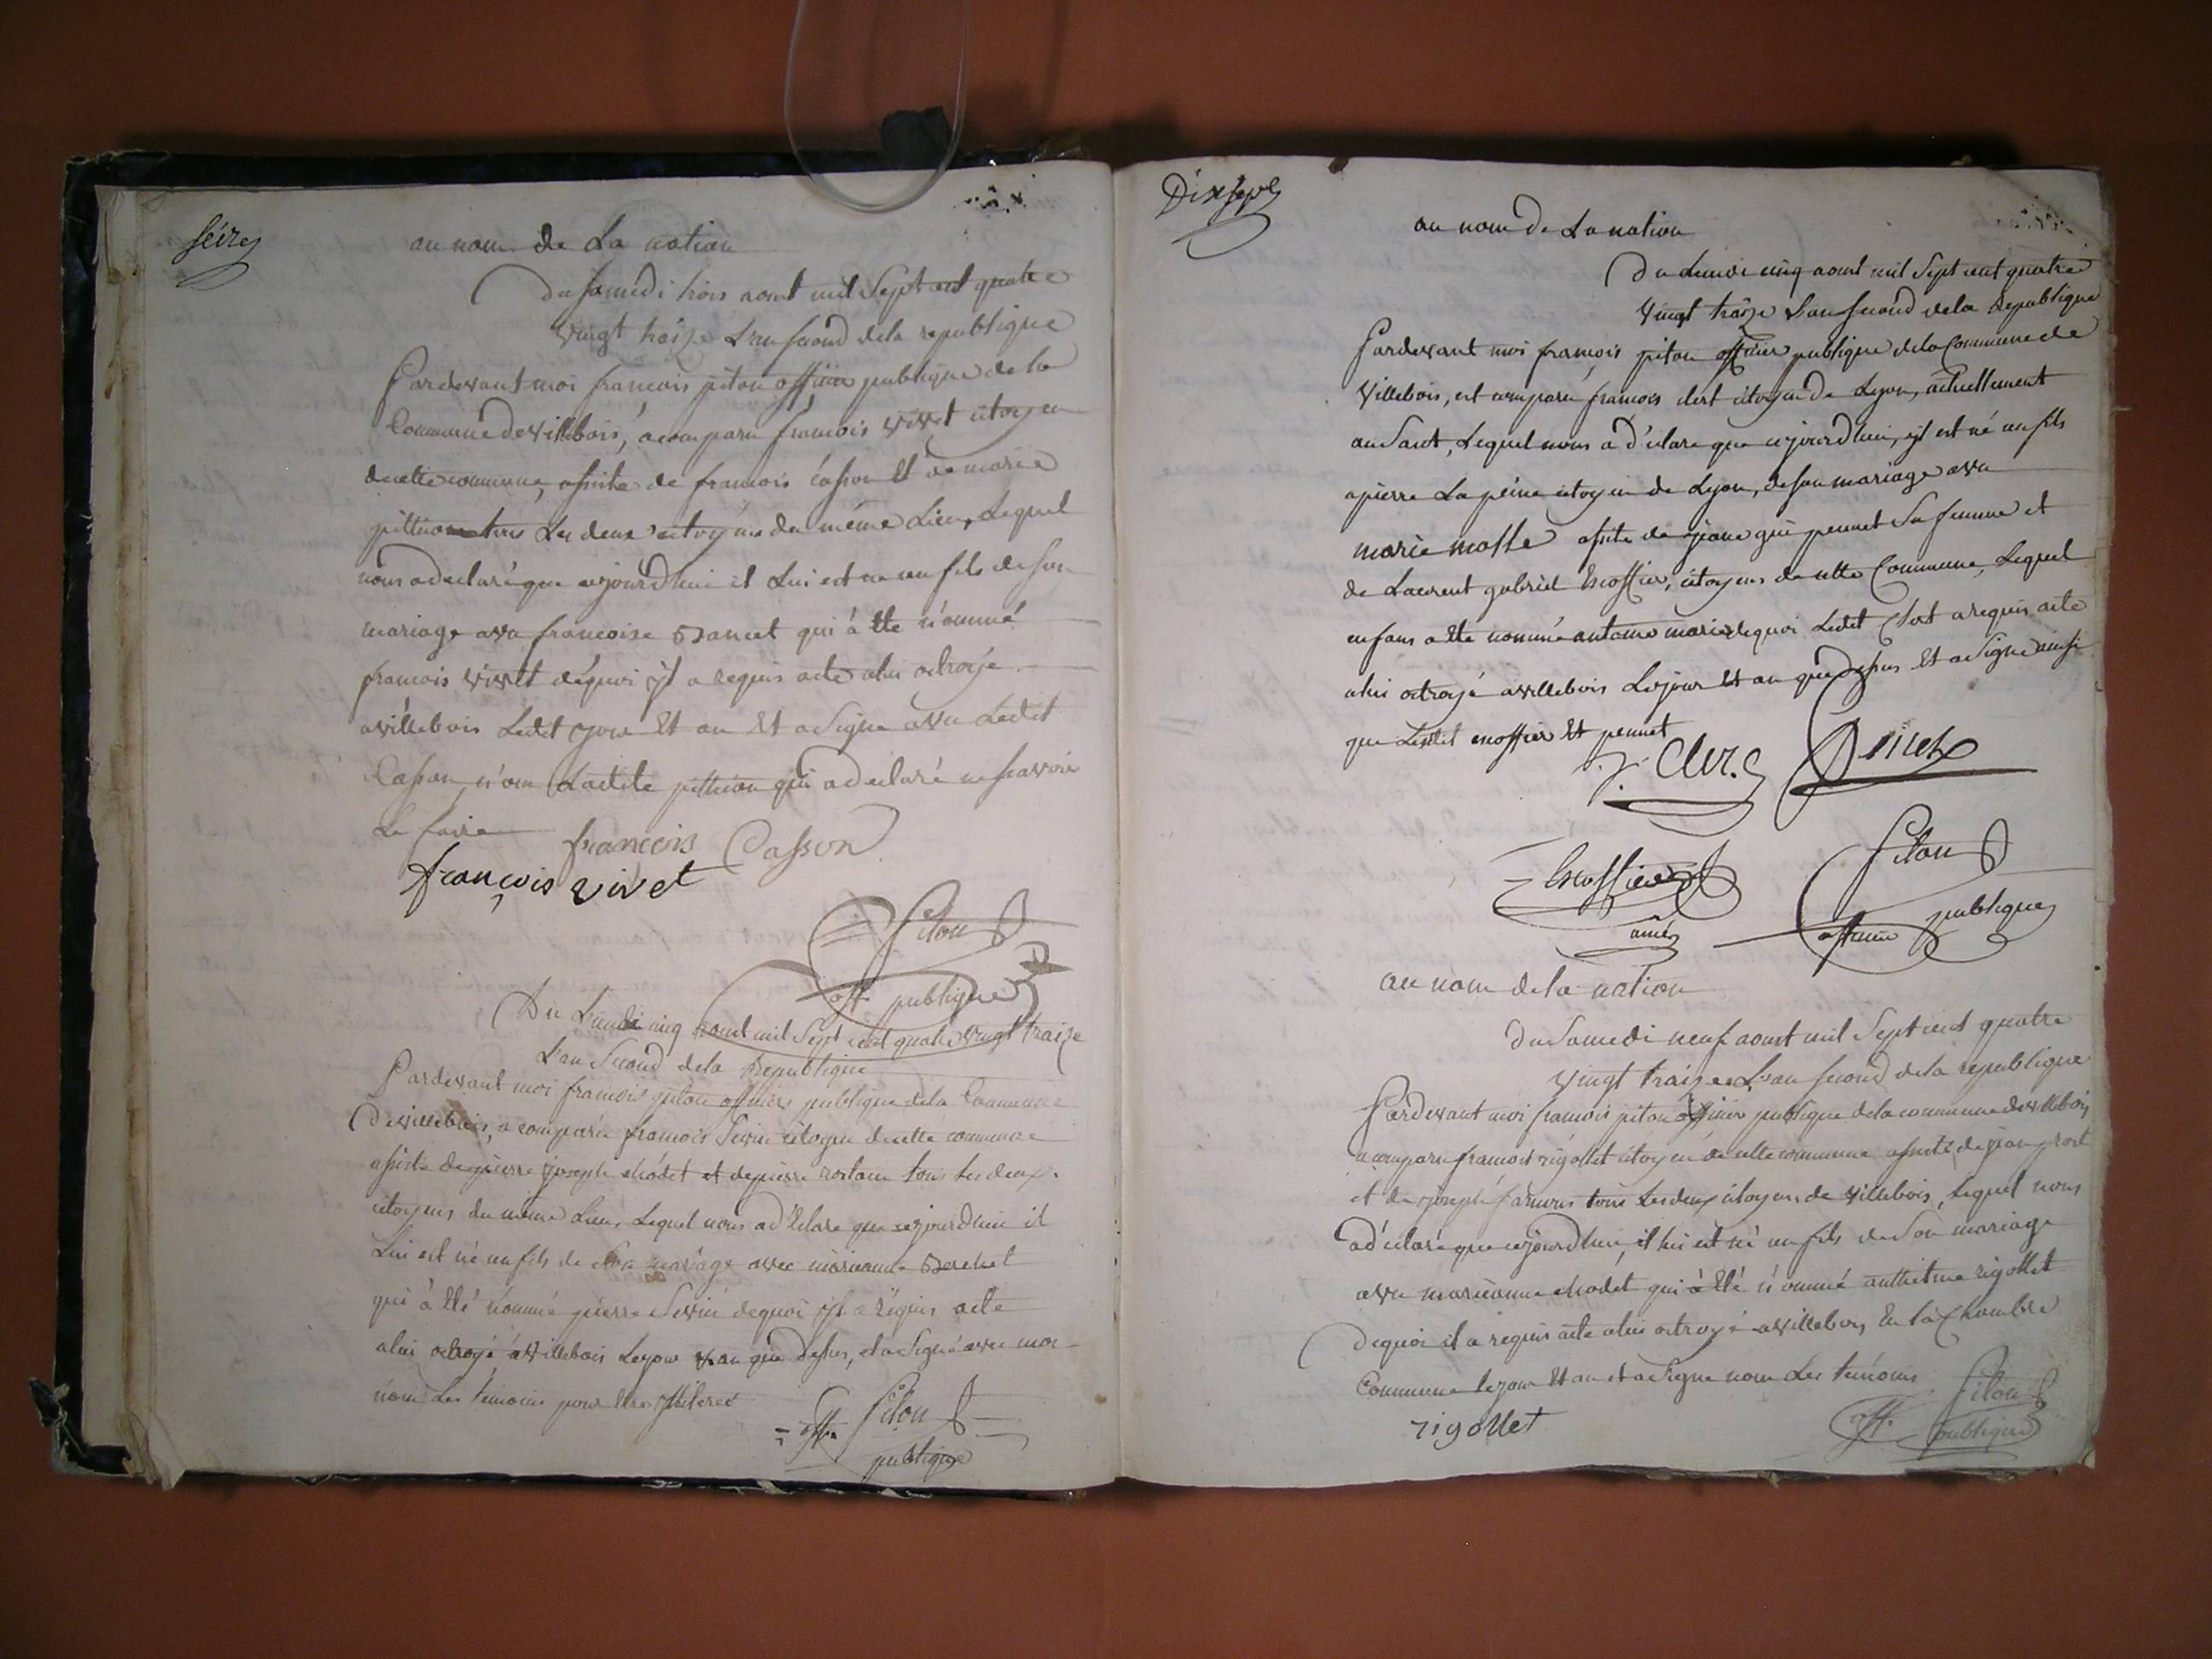 seize
au nom de La nation
Du samedi trois aout mil Sept cent quatre
vingt traize L'an second dela republique
Pardevant moi francois piton officier publique de la
Commune de villebois, a comparu francois vivet citoyen
de cette commune, assisté de francois casson et de marie
pithion tous Les deux citoyens du même Lieu, Lequel
nous a declaré que aujourdhui il Lui est né un fils de son
mariage avec francoise qui à été nommé
francois vivet dequoi il a requis acte alui octroyé
a villebois Ledit jour Et an Et a Signe avec Ledit
Casson, non Ladite pithion qui a declaré ne scavoir
Le faire francois Casson
françois vivet
piton
off. publique
Du Lundi cinq aout mil Sept cent quatre vingt traize
L'an Second dela Republique
Pardevant moi francois piton officier publique dela Commune
De villebois, a comparu francois citoyen de cette commune
assisté de pierre joseph chodet et de pierre tous Les deux
citoyens du même Lieu, Lequel nous a déclaré que aujourdhui il
Lui est né un fils de Son mariage avec marianne
qui à été nommé pierre dequoi il a requis acte
alui octroyé à villebois Le jour Et an que dessus, et a Signé avec moi
non Les temoins pour être
off. piton
publique
Dix sept
au nom de La nation
Du Lundi cinq aout mil Sept cent quatre
vingt traize L'an second dela Republique
Pardevant moi francois piton officier publique dela Commune de
Villebois, est comparu francois clert citoyen de Lyon, actuellement
au Saut, Lequel nous a déclare que aujourdhui, il est né un fils
a pierre La peine citoyen de Lyon, de son mariage avec
marie masse assisté de jeanne pennet Sa femme et
de Laurent gabriel Escoffier, citoyens de cette Commune, Lequel
enfans a été nommé antoine marie dequoi Ledit Clert a requis acte
alui octroyé a villebois Le jour Et an que dessus Et a Signe ainsi
que Lesdit escoffier Et pennet
f. Clerc Penet
Escoffier
ainé
piton
officier publique
au nom dela nation
du Samedi neuf aout mil Sept cent quatre
vingt traize L'an second dela republique
Pardevant moi francois piton officier publique dela commune de villebois
a comparu francois rigollet citoyen de cette commune assisté de jean
et de joseph tous Les deux citoyens de villebois, Lequel nous
a déclaré que aujourdhui, il lui est né un fils de Son mariage
avec marianne chodet qui à été nommé anthelme rigollet
dequoi il a requis acte alui octroyé a villebois En la Chambre
Commune le jour Et an et a Signe non Les temoins
rigollet
piton
off. publique